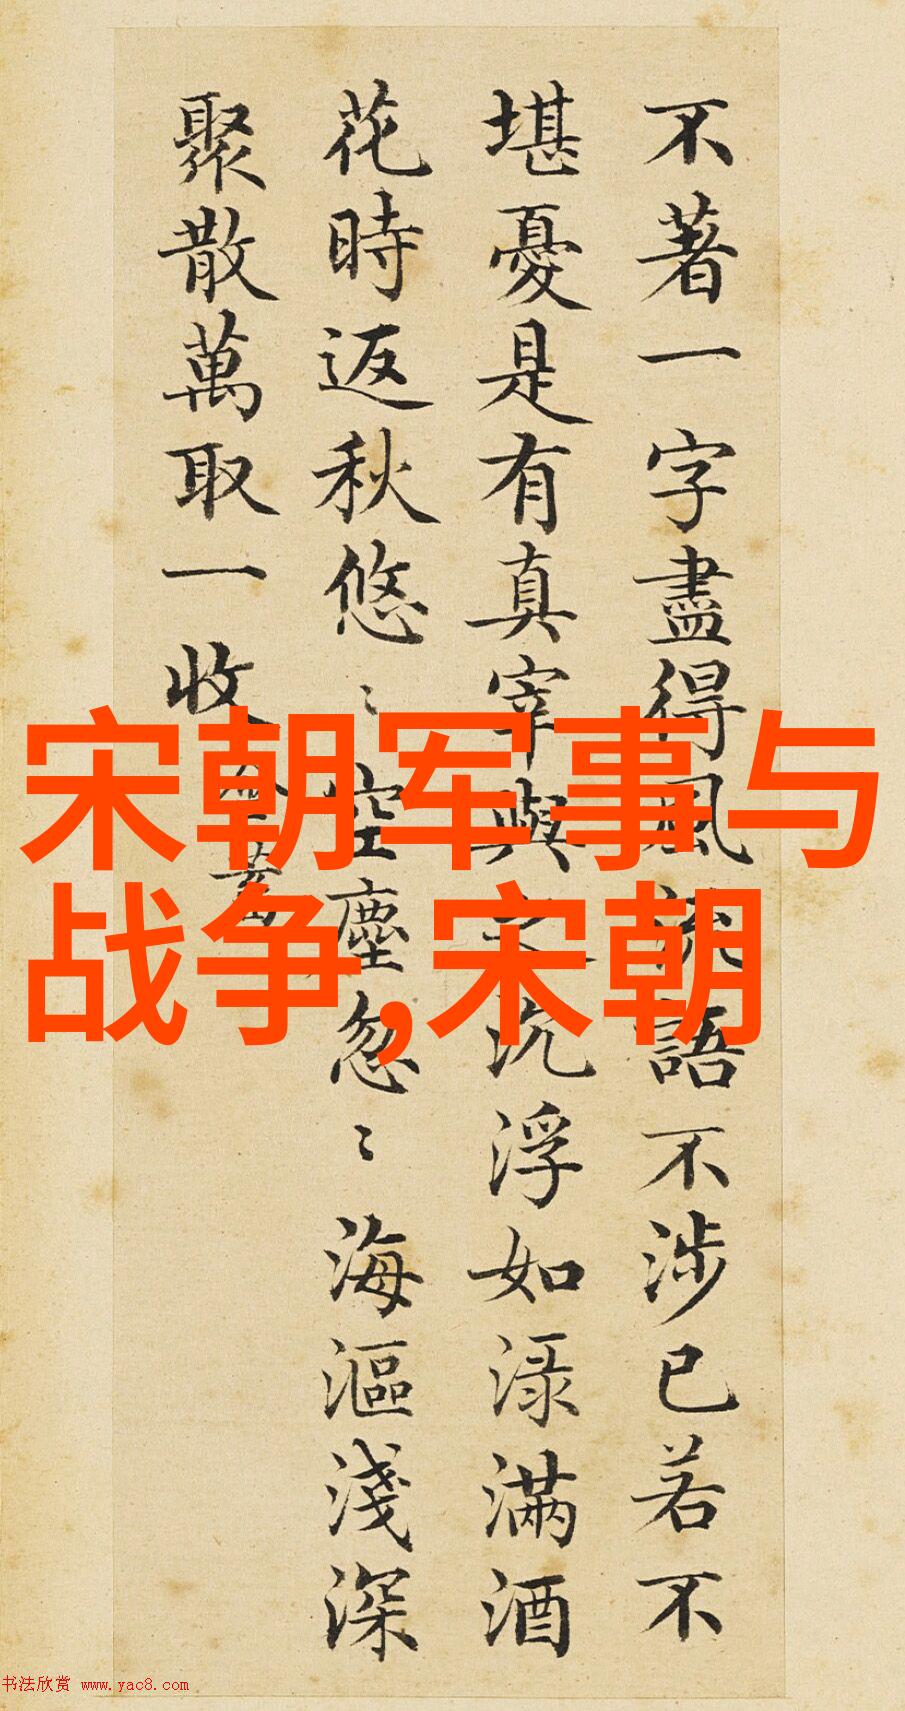 不著一字盡得風流語不涉已若不
堪憂是有真宰與沉浮如渌滿酒
花時返秋悠〻空塵忽〻海漚淺深
聚散萬取一收
宋朝军事与
战争,宋朝
书法欣赏 www.yac8.com